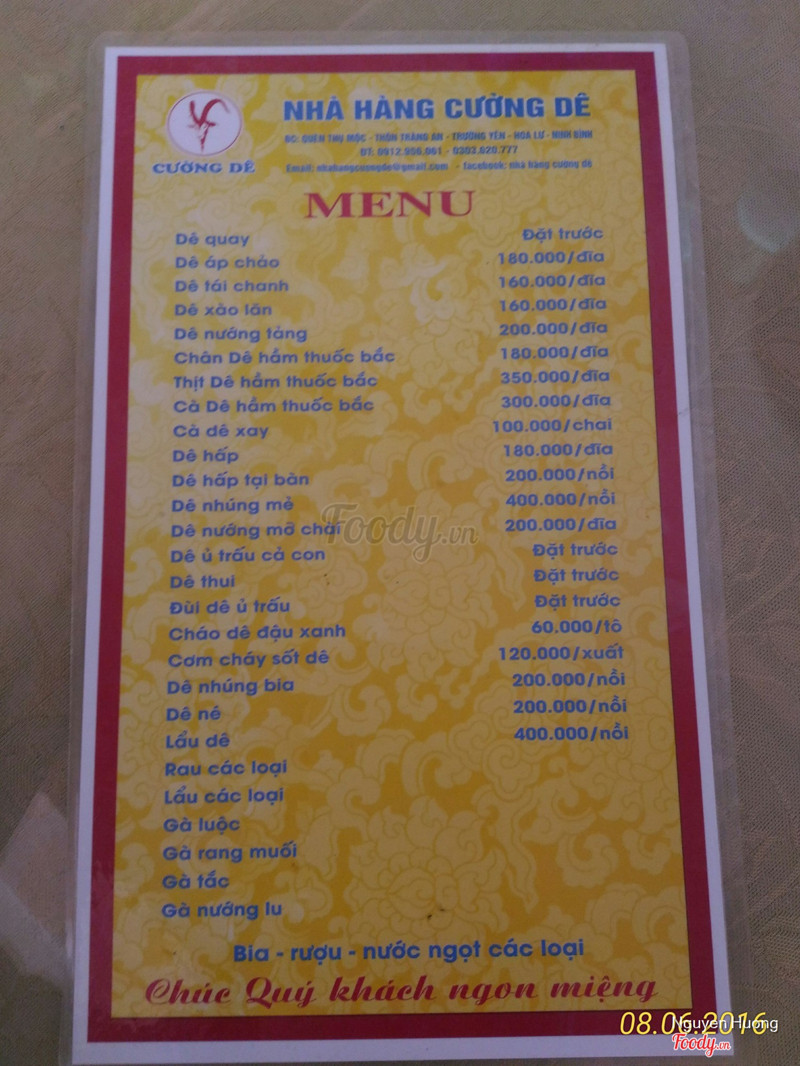 NHÀ HÀNG CƯỜNG DÊ
ĐC: QUÈN THỤ MỘC - THÔN TRÀNG AN - TRƯỜNG YÊN - HOA LƯ - NINH BÌNH
ĐT: 0912.956.061 - 0303.620.777
Email: nhahangcuongde@gmail.com - facebook: nhà hàng cường dê
CƯỜNG DÊ
MENU
Dê quay Đặt trước
Dê áp chảo 180.000/đĩa
Dê tái chanh 160.000/đĩa
Dê xào lăn 160.000/đĩa
Dê nướng tảng 200.000/đĩa
Chân Dê hầm thuốc bắc 180.000/đĩa
Thịt Dê hầm thuốc bắc 350.000/đĩa
Cà Dê hầm thuốc bắc 300.000/đĩa
Cà dê xay 100.000/chai
Dê hấp 180.000/đĩa
Dê hấp tại bàn 200.000/nồi
Dê nhúng mẻ 400.000/nồi
Dê nướng mỡ chài 200.000/đĩa
Dê ủ trấu cả con Đặt trước
Dê thui Đặt trước
Đùi dê ủ trấu Đặt trước
Cháo dê đậu xanh 60.000/tô
Cơm cháy sốt dê 120.000/xuất
Dê nhúng bia 200.000/nồi
Dê né 200.000/nồi
Lẩu dê 400.000/nồi
Rau các loại
Lẩu các loại
Gà luộc
Gà rang muối
Gà tắc
Gà nướng lu
Bia - rượu - nước ngọt các loại
Chúc Quý khách ngon miệng
Foody.vn
08.06.2016
Nguyen Huong
Foody.vn